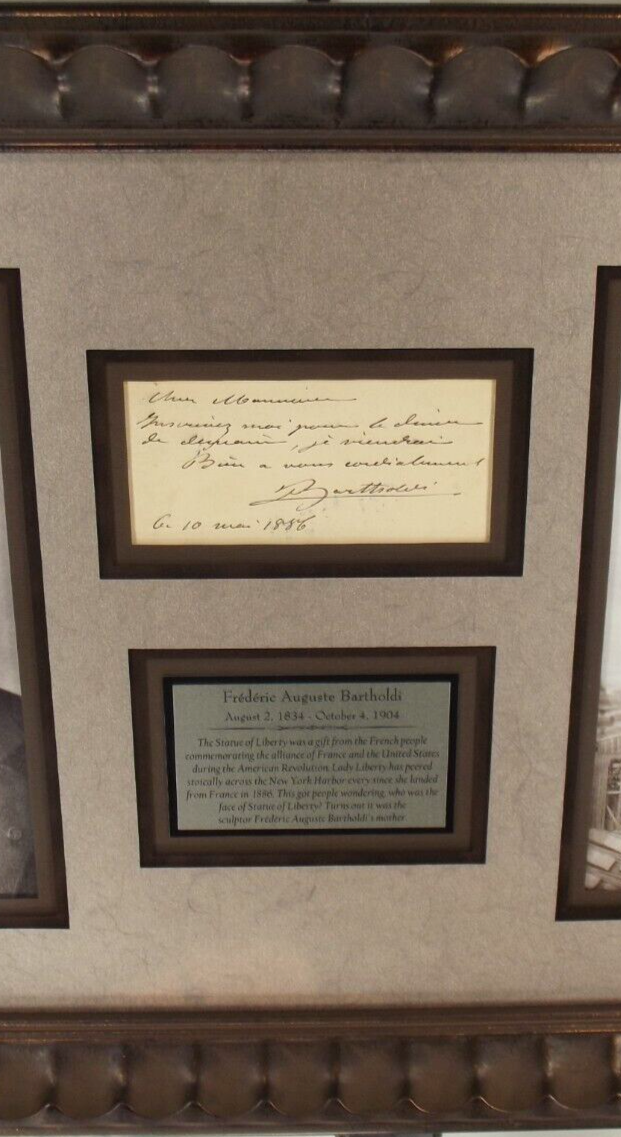 Cher Monsieur
Inscrivez moi pour le diner
de demain, je viendrai
Bien a vous cordialement
Bartholdi
le 10 mai 1886
Frédéric Auguste Bartholdi
August 2, 1834 - October 4, 1904
The Statue of Liberty was a gift from the French people
commemorating the alliance of France and the United States
during the American Revolution. Lady Liberty has peered
stoically across the New York Harbor every since she landed
from France in 1886. This got people wondering, who was the
face of Statue of Liberty? Turns out it was the
sculptor Frédéric Auguste Bartholdi's mother